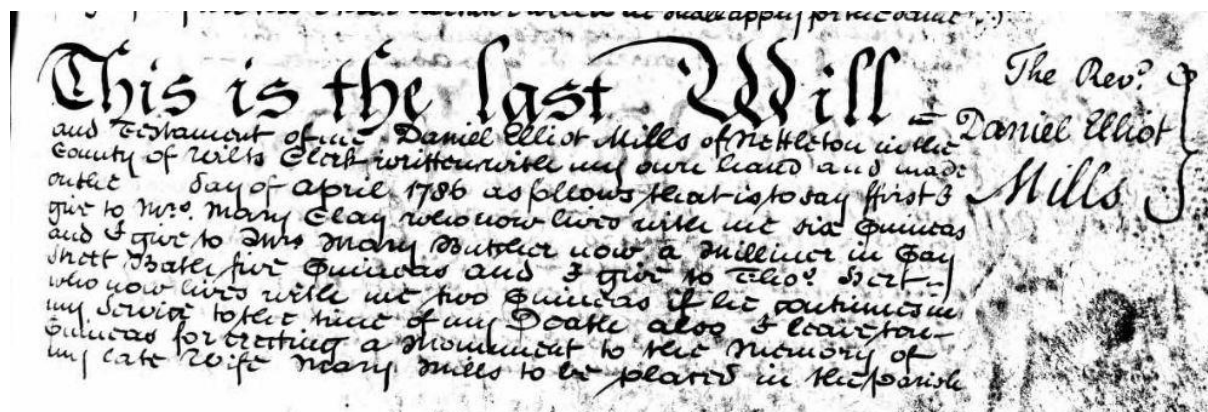 shall apply for the same
This is the last Will
and Testament of me Daniel Elliot Mills of Nettleton in the
County of Wilts Clerk written with my own hand and made
on the day of April 1786 as follows that is to say ffirst I
give to Mrs. Mary Clay who now lives with me six Guineas
and I give to Mrs Mary Butcher now a Milliner in Gay
Street Bath five Guineas and I give to Thos.
who now lives with me two Guineas if he continues in
my Service to the time of my Death also I leave ten
Guineas for erecting a Monument to the Memory of
my late Wife Mary Mills to be placed in the parish
The Revd.
Daniel Elliot
Mills